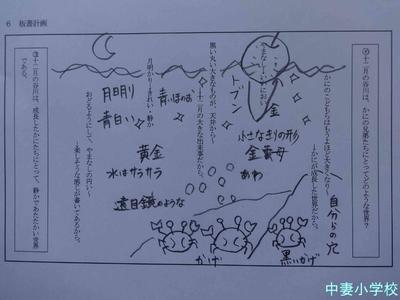 6 板書計画
め十二月の谷川は、かにの兄弟たちにとってどのような世界？
かにのこどもらはもうよほど大きくなり～
～かにが成長した世界だから。
やまなし
トブン
金
小さなきりの形
金雲母
あわ
自分らの穴
黒い丸い大きなものが、天井から～
～十二月の大きな出来事だから。
青いほのお
黄金
水はサラサラ
遠目鏡のような
月明かり～きれい・静か
月明り
青白い
おどるようにして、やまなしの円い～
～楽しそうな感じが書いてあるから。
かげ
黒いかげ
ま十二月の谷川は、成長したかにたちにとって、静かであたたかい世界である。
中妻小学校